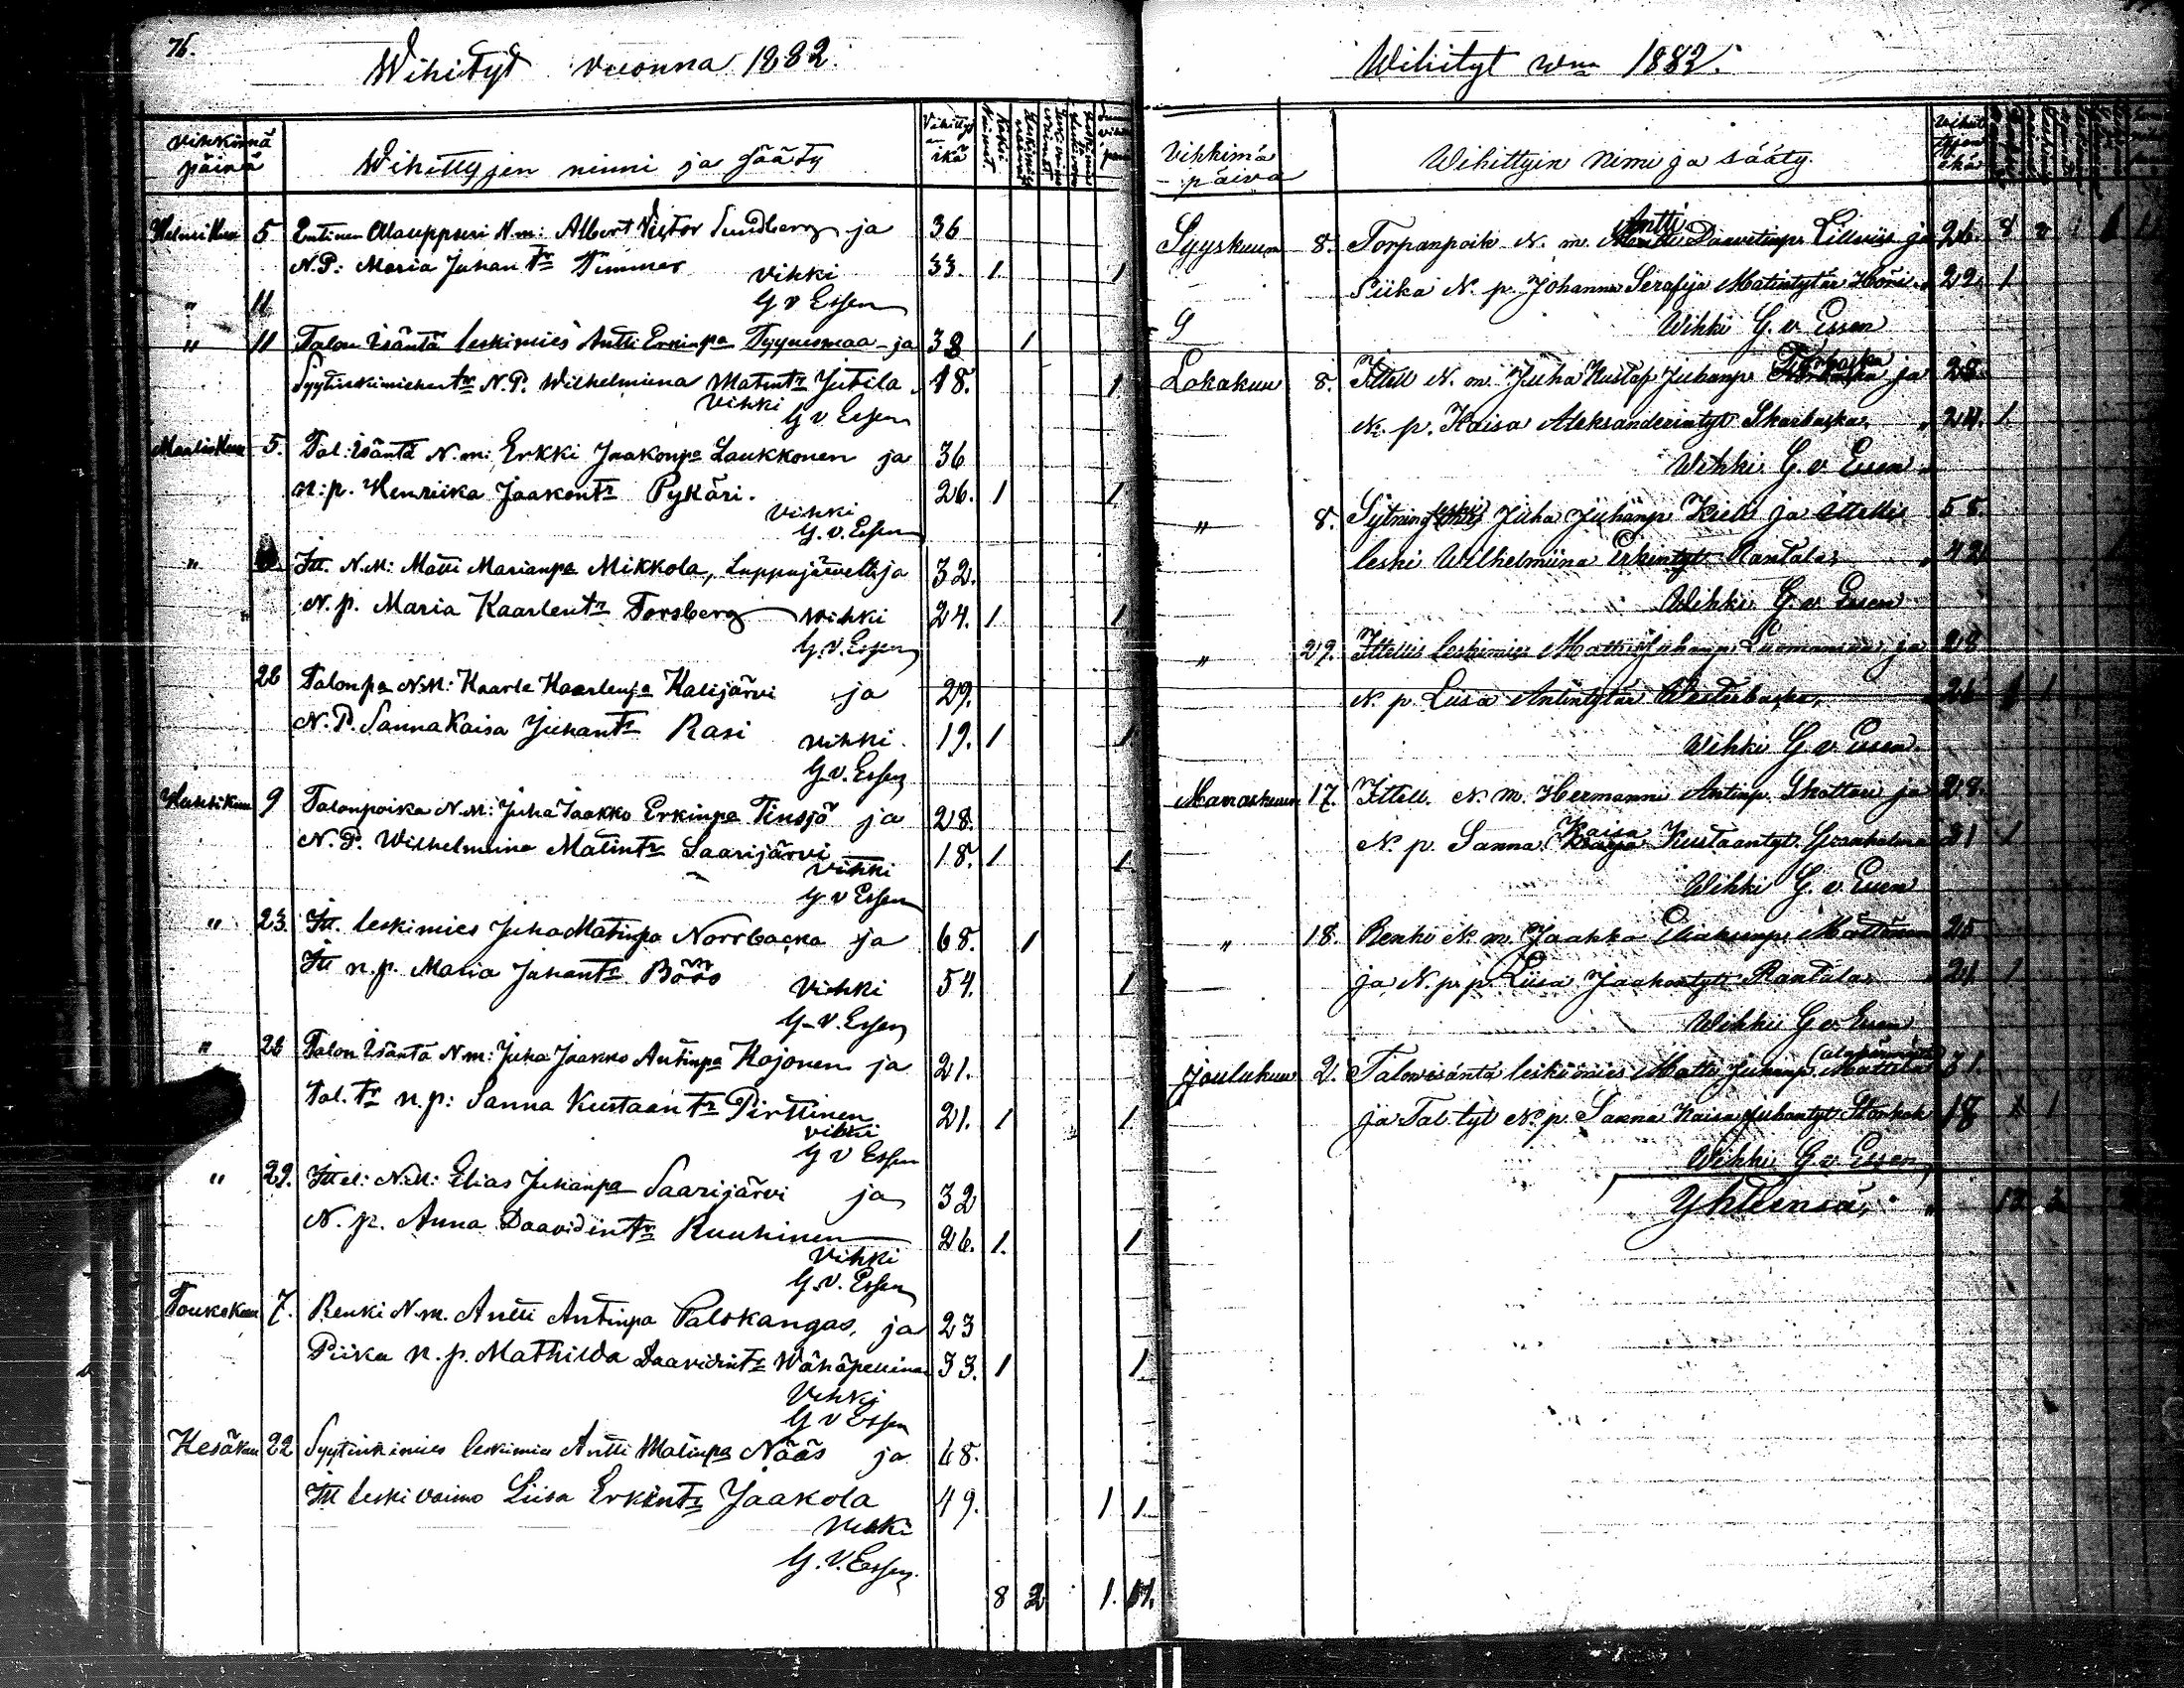 76.
Wihityt vuonna 1882.
vihkimä päivä
Wihittyjen nimi ja sääty
Vihittyjen ikä
5 Entinen Alauppseri N.m: Albert Victor Sundberg ja 36
N.P: Maria Juhan tr Timmer 33. 1. 1
vihki
G v Essen
" 11
" 11 Talon Isäntä leskimies Antti Erkinpa Tyynismaa ja 38 1
N.P. Wilhelmiina Matintr Jutila 18. 1
vihki
G v Essen
Maaliskuu 5. Tal: Isäntä N.m: Erkki Jaakonpa Laukkonen ja 36
n:p. Henriika Jaakontr Pykäri. 26. 1 1
vihki
G. v. Essen
" Itt. N.M: Matti Marianpa Mikkola, Lappajärveltä ja 32.
N. p. Maria Kaarlentr Forsberg vihki 24. 1 1
G. V. Essen
26 Talonpa N.M: Kaarle Kaarlenpa Kalijärvi ja 29.
N. P. Sanna Kaisa Juhantr Rasi vihki 19. 1 1
G. v. Essen
Huhtikuu 9 Talonpoika N.M: Juha Jaakko Erkinpa Tinsjö ja 28.
N. P. Wilhelmiina Matintr Saarijärvi 18. 1 1
vihki
G v Essen
" 23. Itt. leskimies Juha Matinpa Norrbacka ja 68. 1
Itt n.p. Maria Juhantr Böös 54. 1
Vihki
G. V. Essen
" 26 Talon Isäntä N.m: Juha Jaakko Antinpa Kojonen ja 21.
Tal. tr n.p: Sanna Kustaantr Pirttinen 21. 1 1
vihki
G V Essen
" 29. Ittel: N.M: Elias Juhanpa Saarijärvi ja 32
N. p. Anna Daavidintr Ruuhinen 26. 1. 1
Vihki
G. V. Essen
Toukokuu 7. Renki N.m. Antti Antinpa Palokangas, ja 23
Piika n.p. Mathilda Daavidintr Wähäpellinen 33. 1 1.
Vihki
G v Essen
Kesäkuu 22 Syytinkimies leskimies Antti Matinpa Nääs ja 68.
Itt leski vaimo Liisa Erkintr Jaakola 49. 1 1.
Vihki
G. V. Essen.
8 2 1. 11.
Wihityt wna 1882.
Vihkimä päivä
Wihittyin nimi ja sääty.
Syyskuun 8. Torpanpoik N. m. Antti Daavetinp. ja 26. 8 2 1 11
Piika N. p. Johanna Serafija Matintytär 22. 1
9 Wihki G. v. Essen
Lokakuu 8. Ittell N. m. Juha Kustaf Juhanp. ja 28.
N. p. Kaisa Aleksanderintyt 24. 1.
Wihki G. v. Essen
" 8. leski Juha Juhanp Kieli ja ittellis 58.
leski Wilhelmiina Erkintyt Rantala 42
Wihki G. v. Essen
" 29. Ittellis leskimies Matti Juhanp. ja 28
N. p. Liisa Antintytär Westerbacka, 26 1 1
Wihki G. v. Essen
Marraskuun 17. Ittell. N. m. Hermanni Antinp. Skottari ja 28.
N. p. Sanna Kaisa Kustaantyt. Granholm 21 1
Wihki G. v. Essen
" 18. Renki N. m. Jaakko 25
ja N. p. p. Liisa Jaakontyt Rantala 24 1
Wihki G v. Essen
Joulukuu 2. Talonisäntä leskimies Matti Juhanp. Mattila 31.
ja Tal. tyt N. p. Sanna Kaisa Juhantyt 18 1 1
Wihki G. v. Essen
Yhteensä, " 12 2